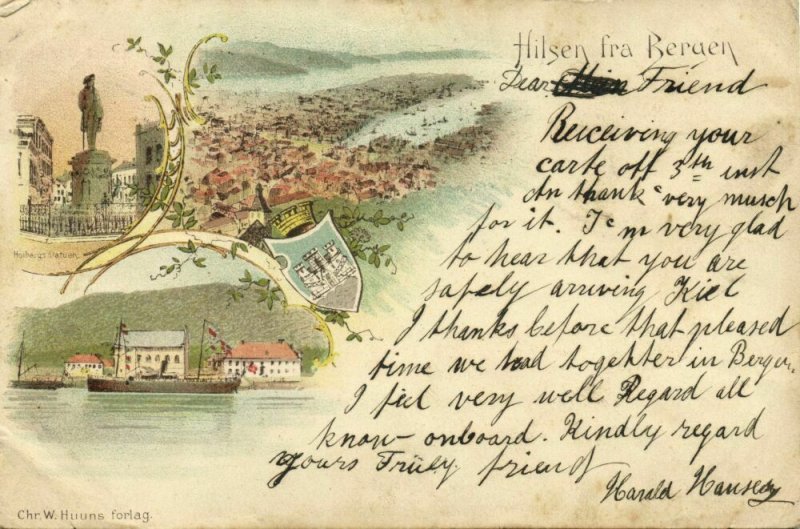 Hilsen fra Bergen
Dear Friend
Receiving your
carte off 3th inst
An thank very musch
for it. I'm very glad
to hear that you are
safely arriving Kiel
I thanks before that pleased
time we had togehter in Bergen.
I feel very well Regard all
know onboard. Kindly regard
yours Truly friend
Harald Hansen
Holbergs Statuen.
Chr. W. Huuns forlag.